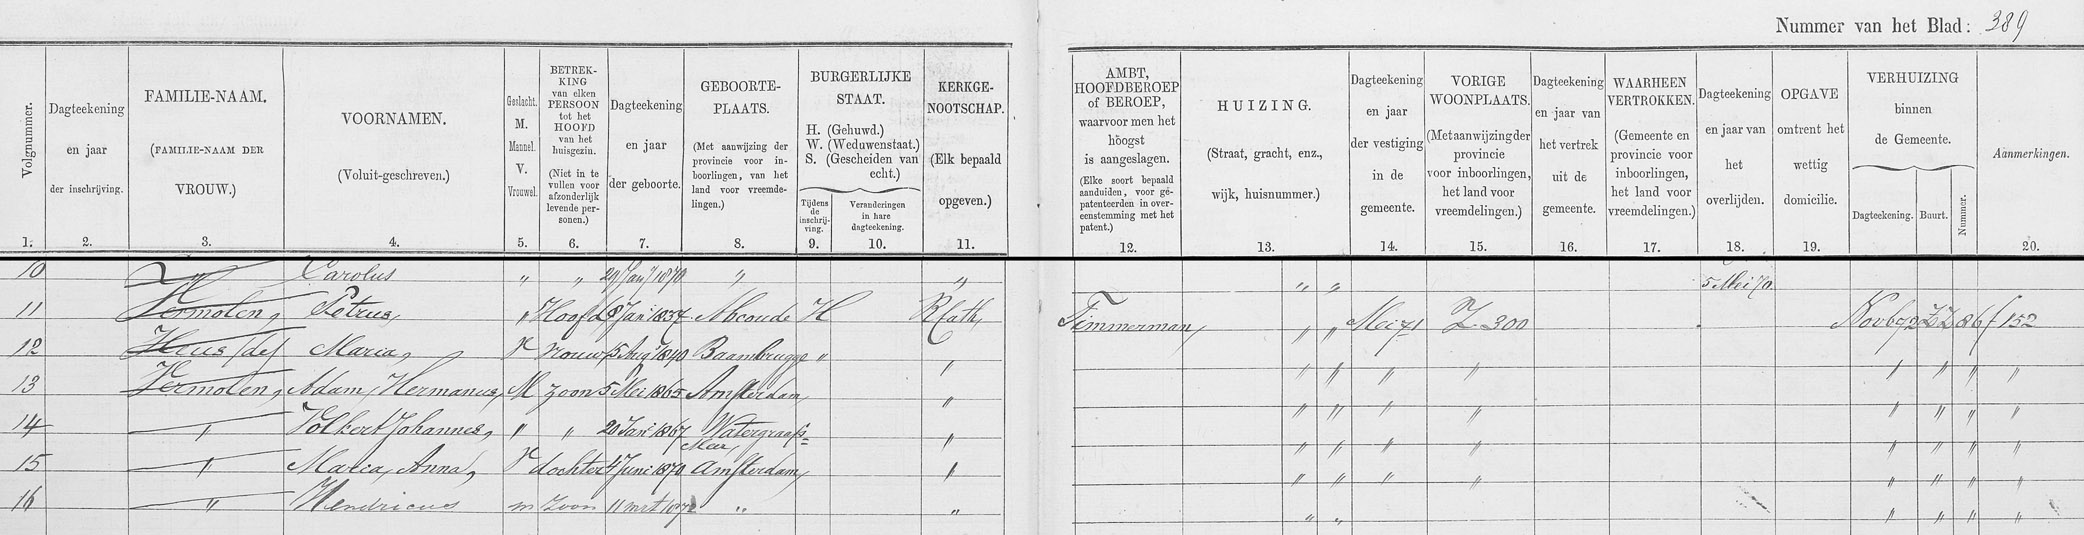 Nummer van het Blad: 389
Volgnummer.
1.
Dagteekening
en jaar
der inschrijving.
2.
FAMILIE-NAAM.
(FAMILIE-NAAM DER
VROUW.)
3.
VOORNAMEN.
(Voluit-geschreven.)
4.
Geslacht.
M.
Mannel.
V.
Vrouwel.
5.
BETREK-
KING
van elken
PERSOON
tot het
HOOFD
van het
huisgezin.
(Niet in te
vullen voor
afzonderlijk
levende per-
sonen.)
6.
Dagteekening
en jaar
der geboorte.
7.
GEBOORTE-
PLAATS.
(Met aanwijzing der
provincie voor in-
boorlingen, van het
land voor vreemde-
lingen.)
8.
BURGERLIJKE
STAAT.
H. (Gehuwd.)
W. (Weduwenstaat.)
S. (Gescheiden van
echt.)
Tijdens
de
inschrij-
ving.
9.
Veranderingen
in hare
dagteekening.
10.
KERKGE-
NOOTSCHAP.
(Elk bepaald
opgeven.)
11.
AMBT,
HOOFDBEROEP
of BEROEP,
waarvoor men het
hoogst
is aangeslagen.
(Elke soort bepaald
aanduiden, voor ge-
patenteerden in over-
eenstemming met het
patent.)
12.
HUIZING.
(Straat, gracht, enz.,
wijk, huisnummer.)
13.
Dagteekening
en jaar
der vestiging
in de
gemeente.
14.
VORIGE
WOONPLAATS.
(Met aanwijzing der
provincie
voor inboorlingen,
het land voor
vreemdelingen.)
15.
Dagteekening
en jaar van
het vertrek
uit de
gemeente.
16.
WAARHEEN
VERTROKKEN.
(Gemeente en
provincie voor
inboorlingen,
het land voor
vreemdelingen.)
17.
Dagteekening
en jaar van
het
overlijden.
18.
OPGAVE
omtrent het
wettig
domicilie.
19.
VERHUIZING
binnen
de Gemeente.
Dagteekening.
Buurt.
Nummer.
Aanmerkingen.
20.
10 " Carolus " " 29 Jany 1870 " " " " 5 Mei 70
11 Vermolen, Petrus, " Hoofd 8 Jan: 1837 Abcoude H R Cath, Timmerman, " " Mei 71 Z 300 Nov 672 ZZ 86 f 152
12 Heus (de) Maria, V vrouw, 5 Aug 1840 Baambrugge " " " " " " " " " "
13 Vermolen, Adam, Hermanus, M zoon 5 Mei 1865 Amsterdam, " " " " " " " " "
14 " Volkert Johannes, " " 20 Jan: 1867 Watergraafs=
Meer, " " " " " " " " "
15 " Maria, Anna, V dochter 4 Juni 1870 Amsterdam, " " " " " " " " "
16 " Hendricus m Zoon 11 mrt 1872 " " " " " " " "